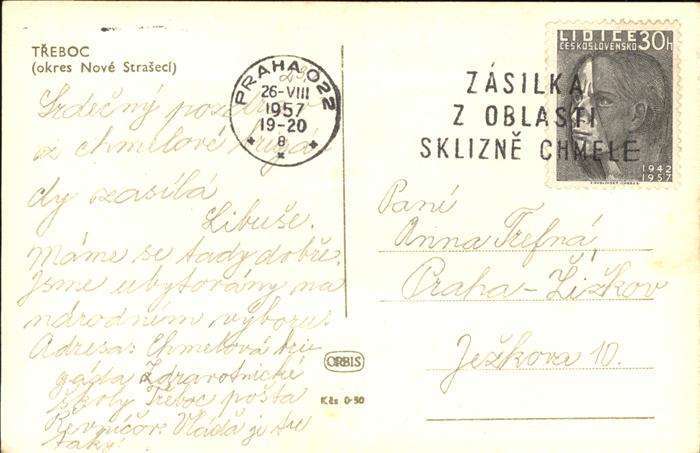 TŘEBOC
(okres Nové Strašecí)
Srdečný pozdrav
z chmelové brigá
dy zasílá
Libuše.
Máme se tady dobře.
Jsme ubytovány na
národním výboru.
Adresa: Chmelová bri
gáda Zdravotnické
školy Třeboc pošta
je zde
také
PRAHA 022
26-VIII
1957
19-20
8
ZÁSILKA
Z OBLASTI
SKLIZNĚ CHMELE
LIDICE
ČESKOSLOVENSKO 30h
1942
1957
Paní
Anna Trefná
Praha-Žižkov
Ježkova 10.
ORBIS
Kčs 0·50